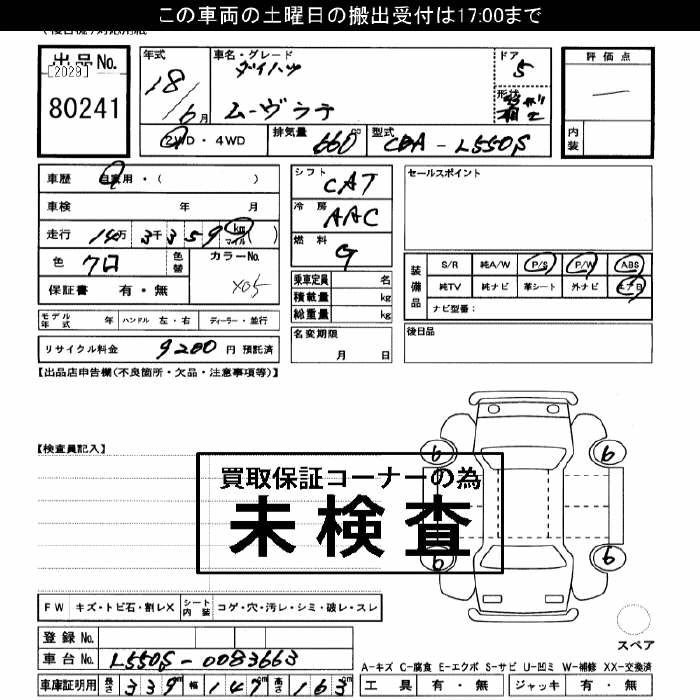 この車両の土曜日の搬出受付は17:00まで
出品No.
[2029]
80241
年式
18/6月
車名・グレード
ダイハツ
ムーヴラテ
ドア
5
形状
評価点
内装
2WD・4WD
排気量
660cc
型式
CBA-L550S
車歴 自家用・( )
車検 年 月
走行 14万3千359 km マイル ( )
色 クロ
色替
カラーNo.
X05
保証書 有・無
シフト
CAT
冷房
AAC
燃料
G
乗車定員 名
積載量 kg
総重量 kg
セールスポイント
装備品
S/R 純A/W P/S P/W ABS
純TV 純ナビ 革シート 外ナビ エアB
ナビ型番:
モデル年式 年 ハンドル 左・右 ディーラー・並行
名変期限
月 日
後日品
リサイクル料金 9200 円 預託済
【出品店申告欄(不良箇所・欠品・注意事項等)】
【検査員記入】
6 6
6 6
買取保証コーナーの為
未検査
FW キズ・トビ石・割レX シート内装 コゲ・穴・汚レ・シミ・破レ・スレ
スペア
登録No.
車台No. L550S-0083663
A-キズ C-腐食 E-エクボ S-サビ U-凹ミ W-補修 XX-交換済
車庫証明用 長さ 339cm 幅 147cm 高さ 163cm
工具 有・無 ジャッキ 有・無